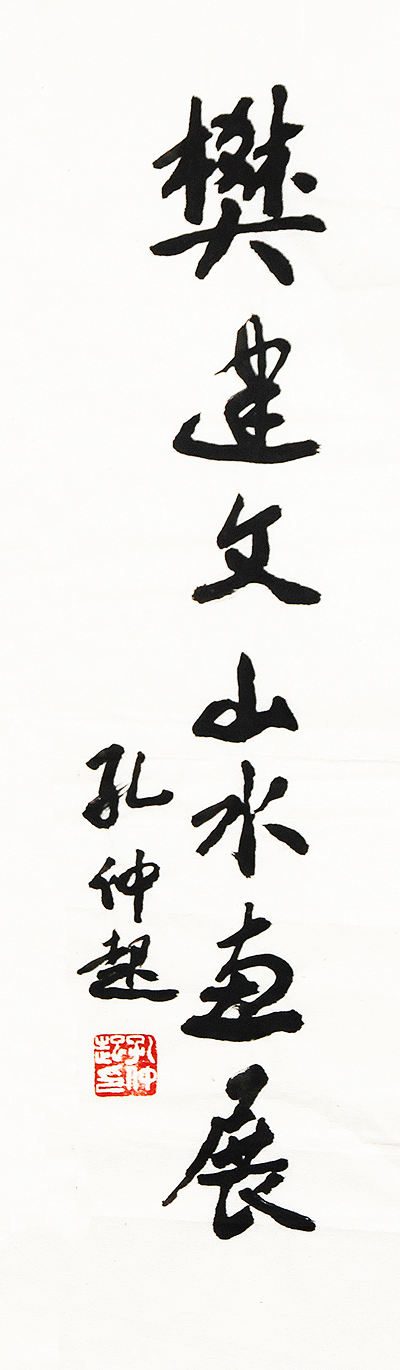 樊建文山水画展
孔仲起
孔仲起印